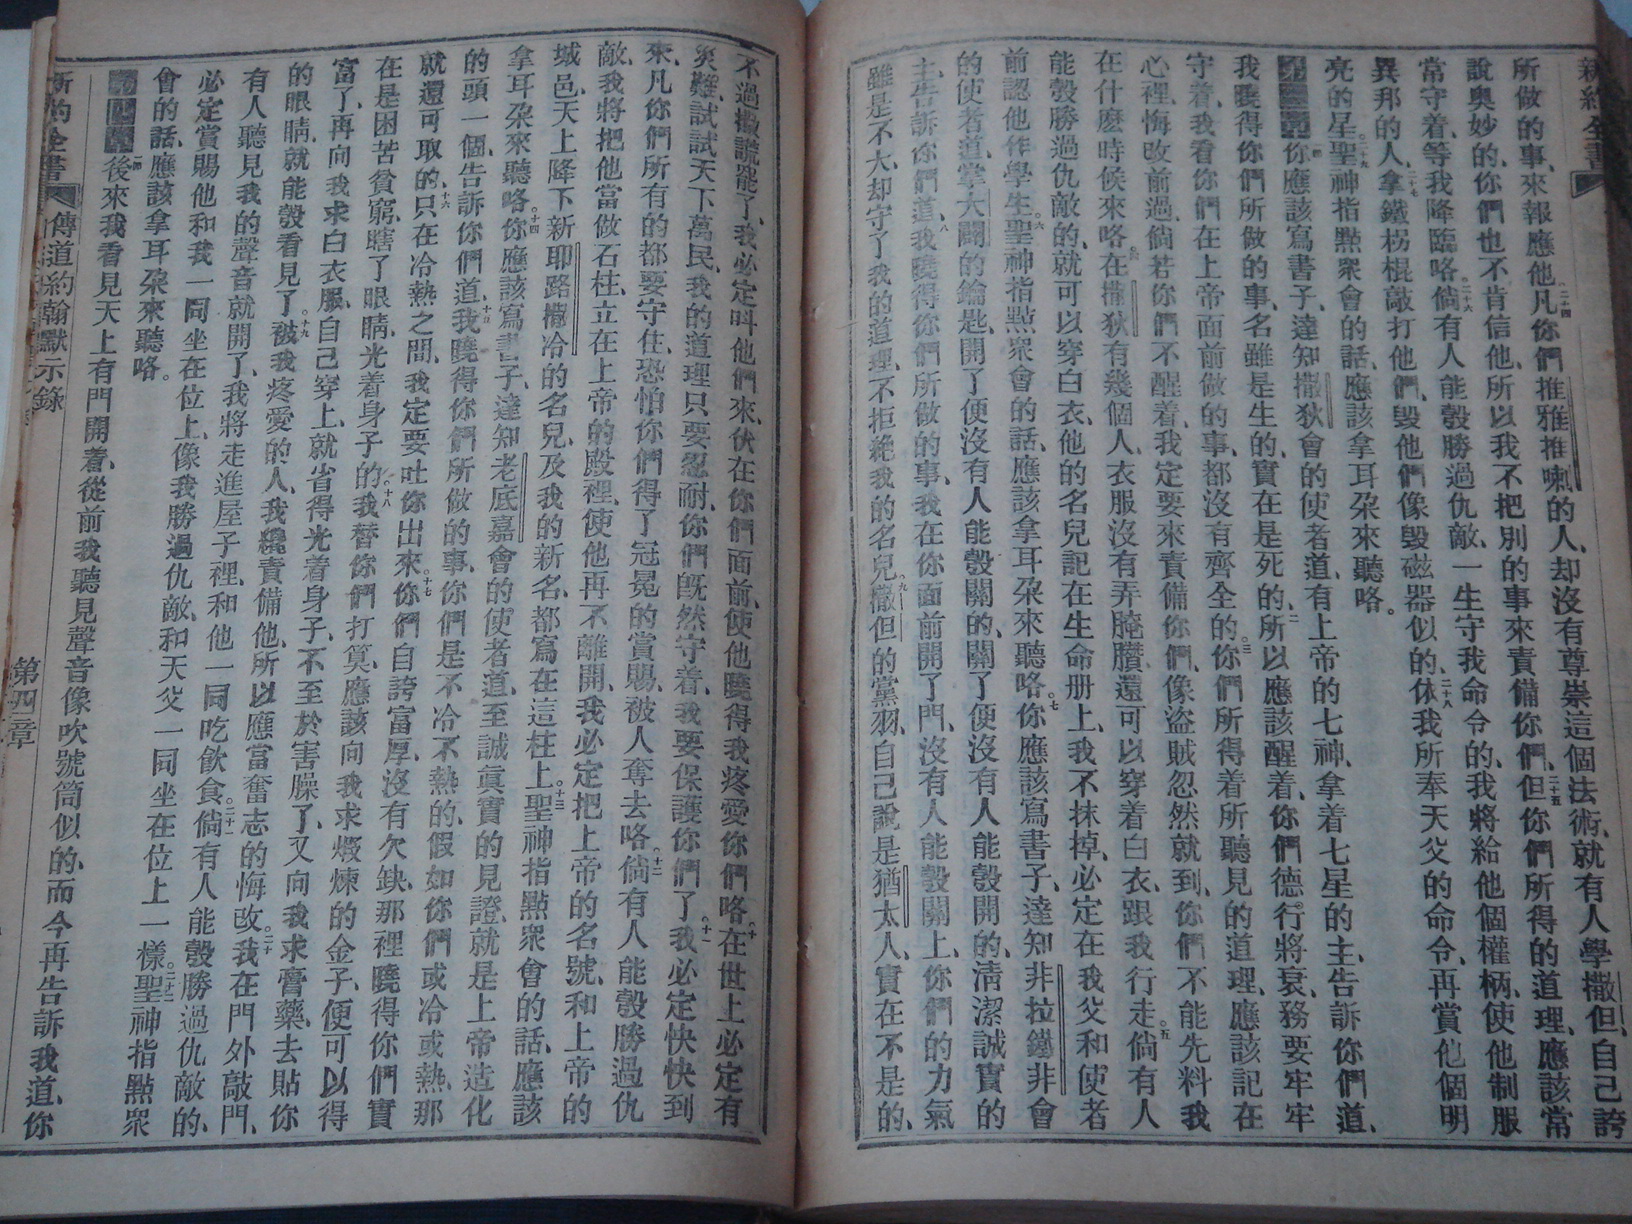 新約全書
所做的事、來報應他、二十四凡你們推雅推喇的人、却沒有尊崇這個法術、就有人學撒但、自己誇
說奥妙的、你們也不肯信他、所以我不把別的事來責備你們、二十五但你們所得的道理、應該常
常守着、等我降臨咯、二十六倘有人能彀勝過仇敵、一生守我命令的、我將給他個權柄、使他制服
異邦的人、二十七拿鐵拐棍敲打他們、毀他們像毀磁器似的、二十八休我所奉天父的命令、再賞他個明
亮的星、二十九聖神指點衆會的話、應該拿耳朶來聽咯。
第三章一你應該寫書子、達知撒狄會的使者道、有上帝的七神、拿着七星的主、告訴你們道、
我曉得你們所做的事、名雖是生的、實在是死的、二所以應該醒着、你們德行將衰、務要牢牢
守着、我看你們在上帝面前做的事、都沒有齊全的、三你們所得着所聽見的道理、應該記在
心裡、悔改前過、倘若你們不醒着、我定要來責備你們、像盜賊忽然就到、你們不能先料我
在什麽時候來咯、四在撒狄有幾個人、衣服沒有弄腌臢、還可以穿着白衣、跟我行走、五倘有人
能彀勝過仇敵的、就可以穿白衣、他的名兒記在生命册上、我不抹掉、必定在我父和使者
前認他作學生、六聖神指點衆會的話、應該拿耳朶來聽咯、七你應該寫書子、達知非拉鐵非會
的使者道、掌大闢的鑰匙、開了便沒有人能彀關的、關了便沒有人能彀開的、清潔誠實的
主、告訴你們道、八我曉得你們所做的事、我在你面前開了門、沒有人能彀關上、你們的力氣
雖是不大、却守了我的道理、不拒絕我的名兒、九撒但的黨羽、自己說是猶太人、實在不是的、
不過撒謊罷了、我必定叫他們來、伏在你們面前、使他曉得我疼愛你們咯、十在世上必定有
災難、試試天下萬民、我的道理只要忍耐、你們旣然守着、我要保護你們了、十一我必定快快到
來、凡你們所有的、都要守住、恐怕你們得了冠冕的賞賜、被人奪去咯、十二倘有人能彀勝過仇
敵、我將把他當做石柱、立在上帝的殿裡、使他再不離開、我必定把上帝的名號、和上帝的
城邑、天上降下新耶路撒冷的名兒、及我的新名、都寫在這柱上、十三聖神指點衆會的話、應該
拿耳朶來聽咯、十四你應該寫書子、達知老底嘉會的使者道、至誠眞實的見證、就是上帝造化
的頭一個、告訴你們道、十五我曉得你們所做的事、你們是不冷不熱的、假如你們或冷或熱、那
就還可取的、十六只在冷熱之間、我定要吐你出來、十七你們自誇富厚、沒有欠缺、那裡曉得你們實
在是困苦貧窮、瞎了眼睛、光着身子的、十八我替你們打算、應該向我求煅煉的金子、便可以得
富了、再向我求白衣服、自己穿上、就省得光着身子、不至於害臊了、又向我求膏藥、去貼你
的眼睛、就能彀看見了、十九被我疼愛的人、我纔責備他、所以應當奮志的悔改、二十我在門外敲門、
有人聽見我的聲音就開了、我將走進屋子裡、和他一同吃飲食、二十一倘有人能彀勝過仇敵的、
必定賞賜他和我一同坐在位上、像我勝過仇敵、和天父一同坐在位上一樣、二十二聖神指點衆
會的話、應該拿耳朶來聽咯。
第四章一後來我看見天上有門開着、從前我聽見聲音像吹號筒似的、而今再告訴我道、你
新約全書 傳道約翰默示錄 第四章